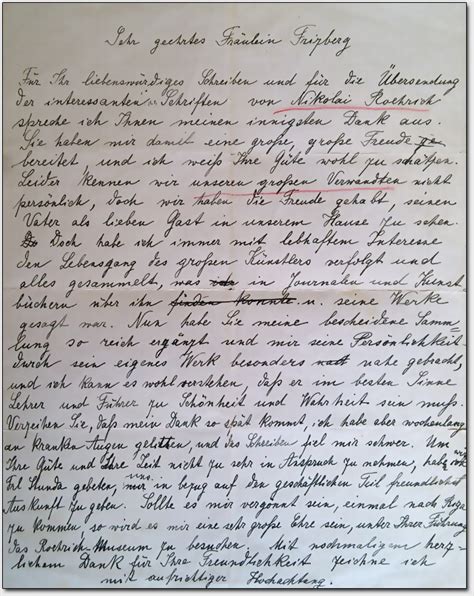 Sehr geehrtes Fräulein Frizberg
Für Ihr liebenswürdiges Schreiben und für die Übersendung
der interessanten Schriften von Nikolai Roehrich
spreche ich Ihnen meinen innigsten Dank aus.
Sie haben mir damit eine große, große Freude ge
bereitet, und ich weiß Ihre Güte wohl zu schätzen.
Leider kennen wir unseren großen Verwandten nicht
persönlich, doch wir haben die Freude gehabt, seinen
Vater als lieben Gast in unserem Hause zu sehen.
Doch habe ich immer mit lebhaftem Interesse
den Lebensgang des großen Künstlers verfolgt und
alles gesammelt, was in Journalen und Kunst-
büchern über ihn finden konnte u. seine Werke
gesagt war. Nun habe Sie meine bescheidene Samm-
lung so reich ergänzt und mir seine Persönlichkeit
durch sein eigenes Werk besonders nahe gebracht,
und ich kann es wohl verstehen, daß er im besten Sinne
Lehrer und Führer zu Schönheit und Wahrheit sein muß.
Verzeihen Sie, daß mein Dank so spät kommt, ich habe aber wochenlang
an kranken Augen gelitten, und das Schreiben fiel mir schwer. Um
Ihre Güte und Ihre Zeit nicht zu sehr in Anspruch zu nehmen, habe ich
Frl Hunda gebeten, uns in bezug auf den geschäftlichen Teil freundlichst
Auskunft zu geben. Sollte es mir vergönnt sein, einmal nach Riga
zu kommen, so wird es mir eine sehr große Ehre sein, unter Ihrer Führung
das Roehrich Museum zu besuchen. Mit nochmaligem herz-
lichem Dank für Ihre Freundlichkeit zeichne ich
mit aufrichtiger Hochachtung.